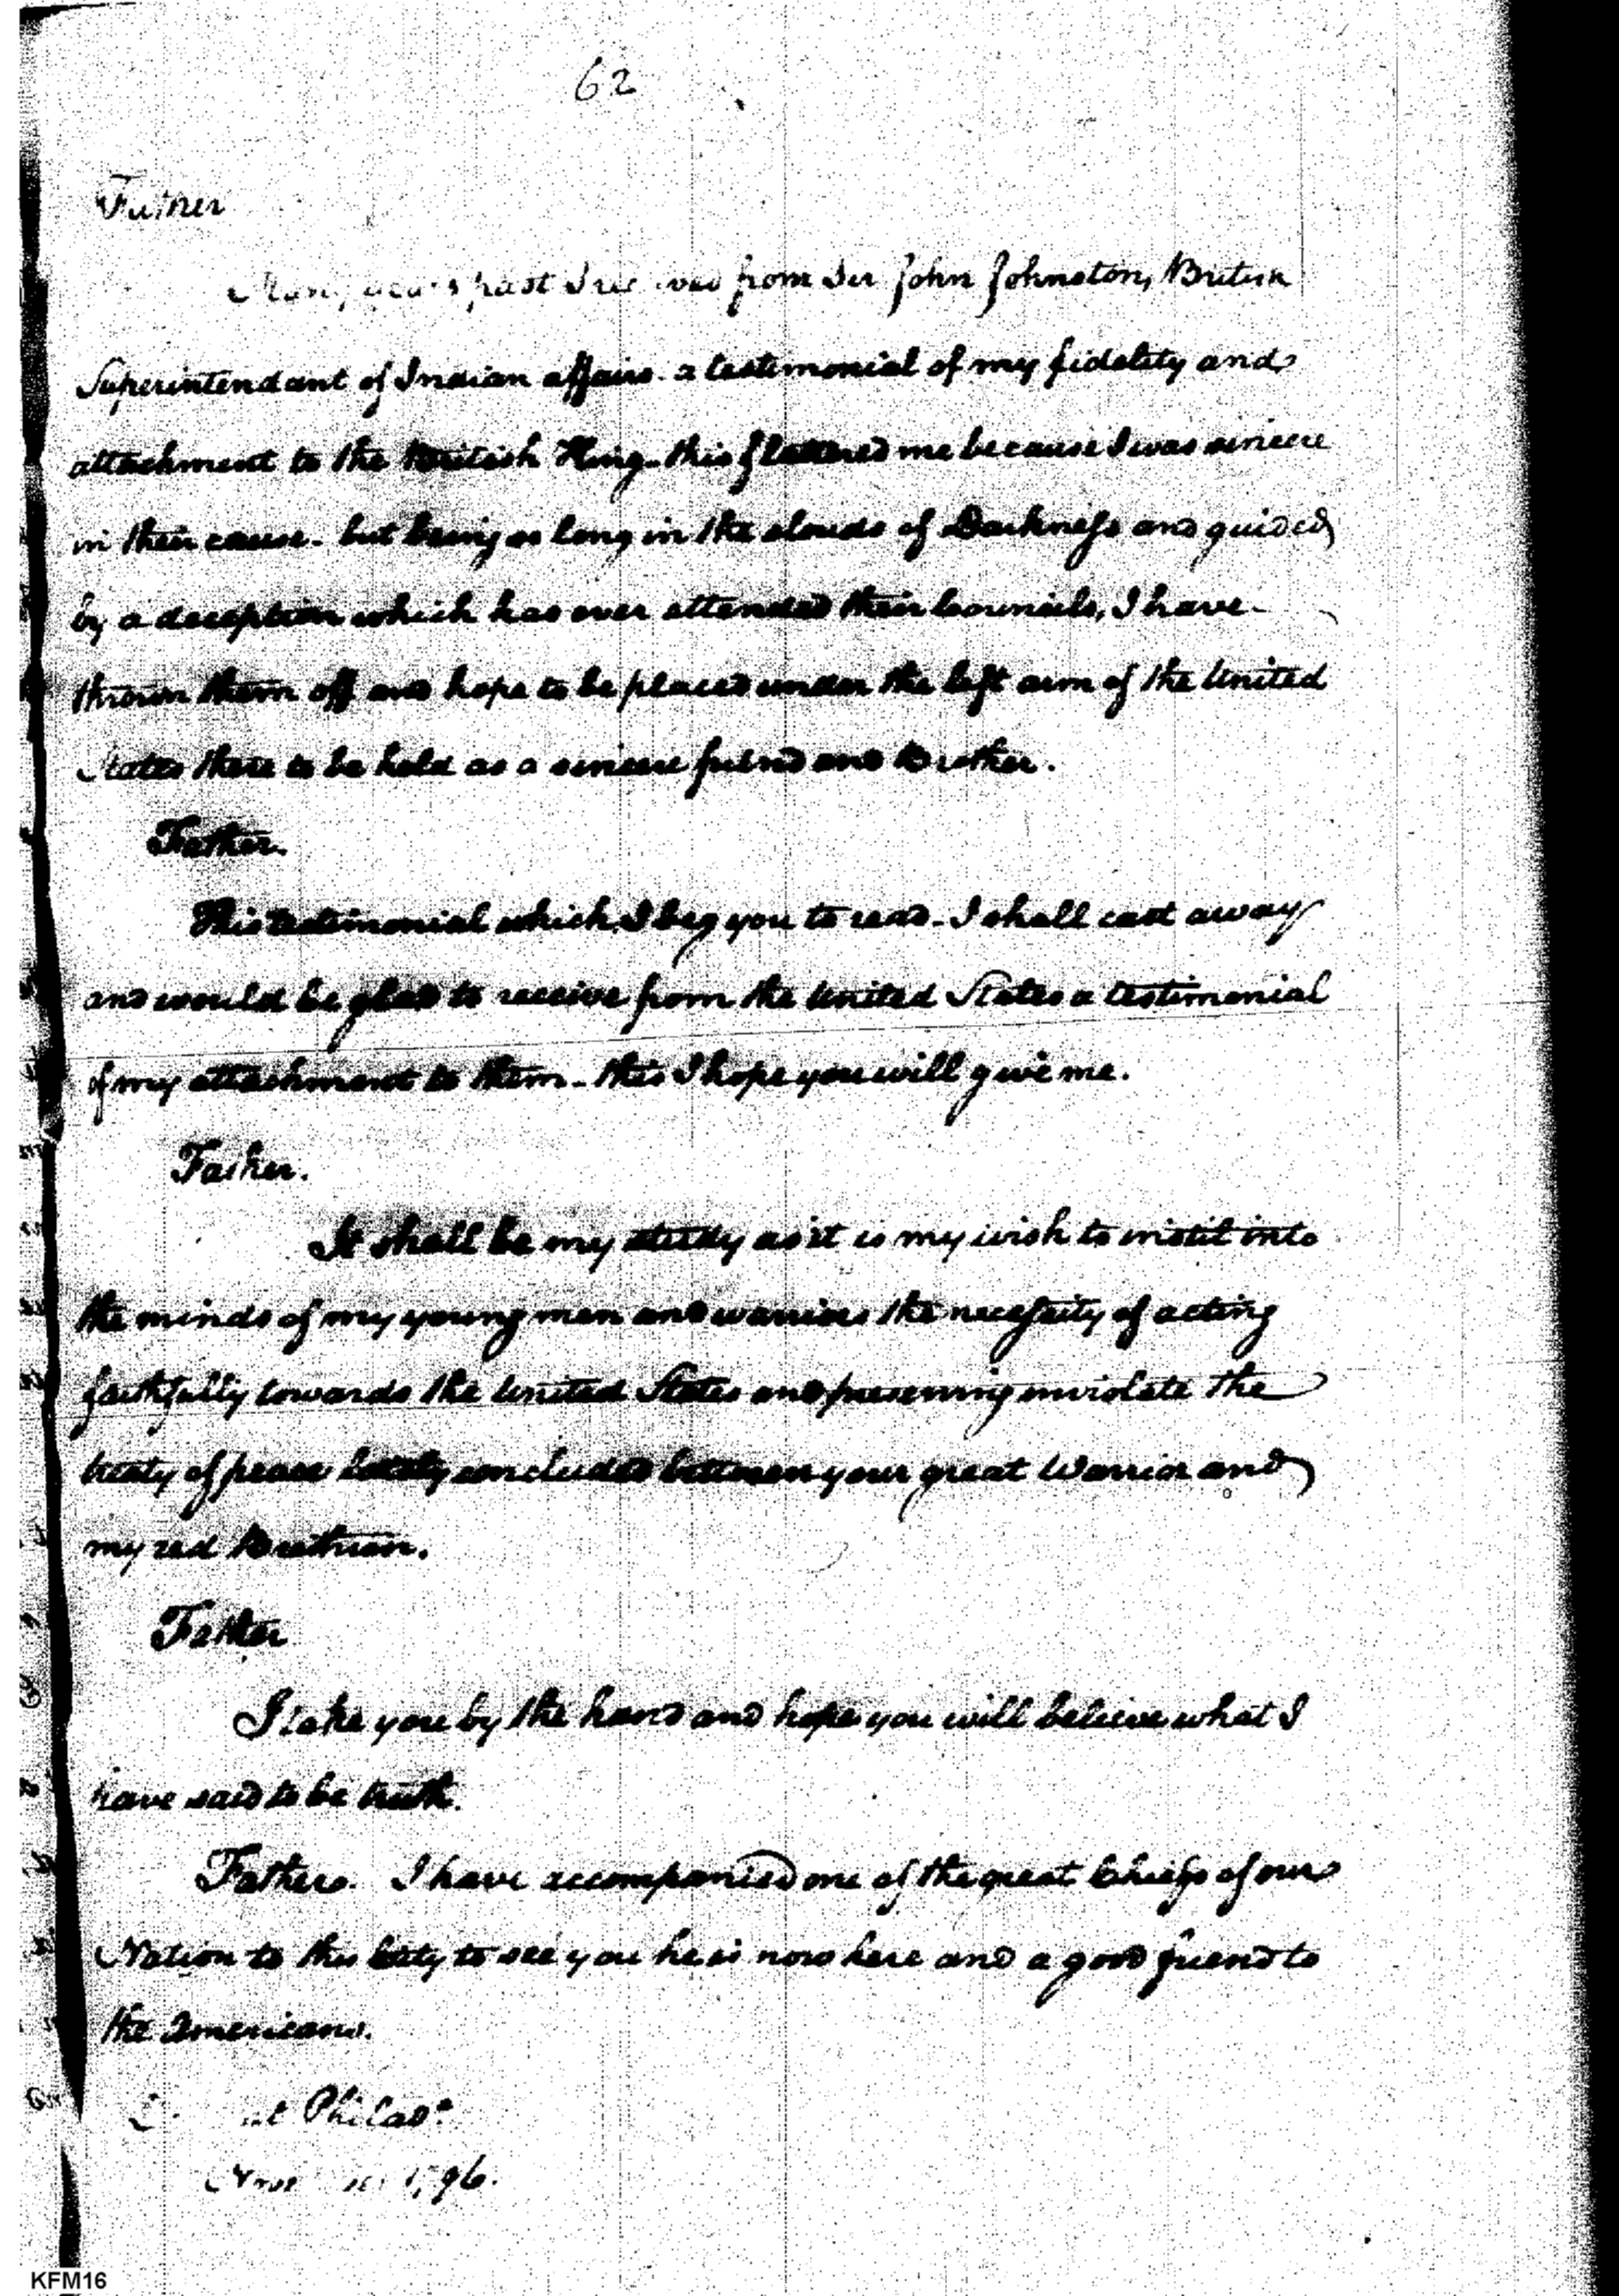 62
Father
Many years past I received from Sir John Johnston, British
Superintendant of Indian affairs. a testimonial of my fidelity and
attachment to the British King. this flattered me because I was sincere
in their cause. but being so long in the clouds of Darkness and guided
by a deception which has ever attended their Councils, I have
thrown them off and hope to be placed under the left arm of the United
States there to be held as a sincere friend and Brother.
Father.
This testimonial which I beg you to read. I shall cast away
and would be glad to receive from the United States a testimonial
of my attachment to them. this I hope you will give me.
Father.
It shall be my study as it is my wish to instil into
the minds of my young men and warriors the necessity of acting
faithfully towards the United States and preserving inviolate the
treaty of peace lately concluded between your great Warrior and
my red Brethren.
Father
I take you by the hand and hope you will believe what I
have said to be truth.
Fathers. I have accompanied one of the great Chiefs of our
Nation to this City to see you he is now here and a good friend to
the Americans.
at Philada.
1796.
KFM16